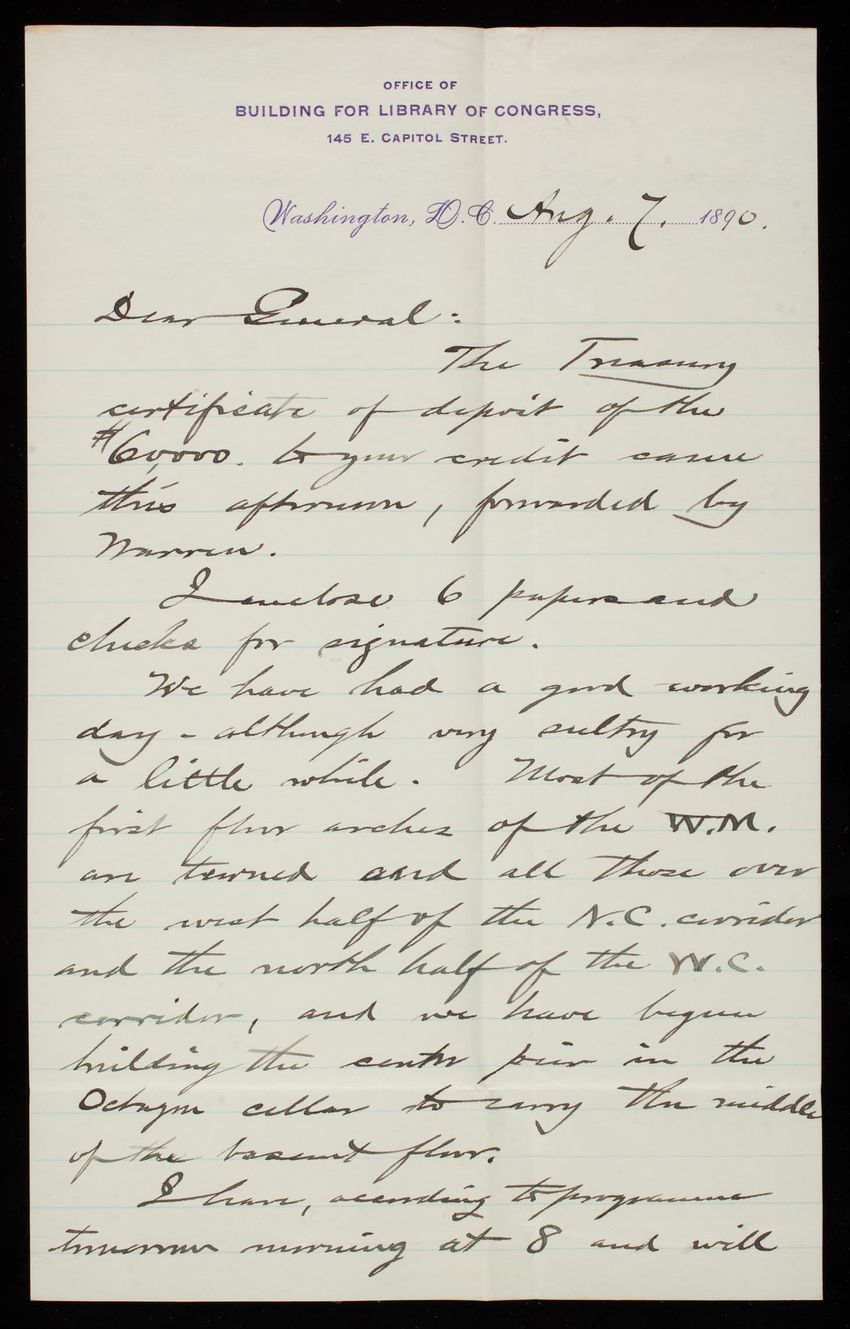 OFFICE OF
BUILDING FOR LIBRARY OF CONGRESS,
145 E. CAPITOL STREET.
Washington, D.C. Aug. 7. 1890.
Dear General:
The Treasury
certificate of deposit of the
$60,000. to your credit came
this afternoon, forwarded by
Warren.
I enclose 6 papers and
checks for signature.
We have had a good working
day - although very sultry for
a little while. Most of the
first floor arches of the W.M.
are turned and all those over
the west half of the N.C. corridor
and the north half of the W.C.
corridor, and we have begun
building the center pier in the
Octagon cellar to carry the middle
of the basemt floor.
I leave, according to programme
tomorrow morning at 8 and will